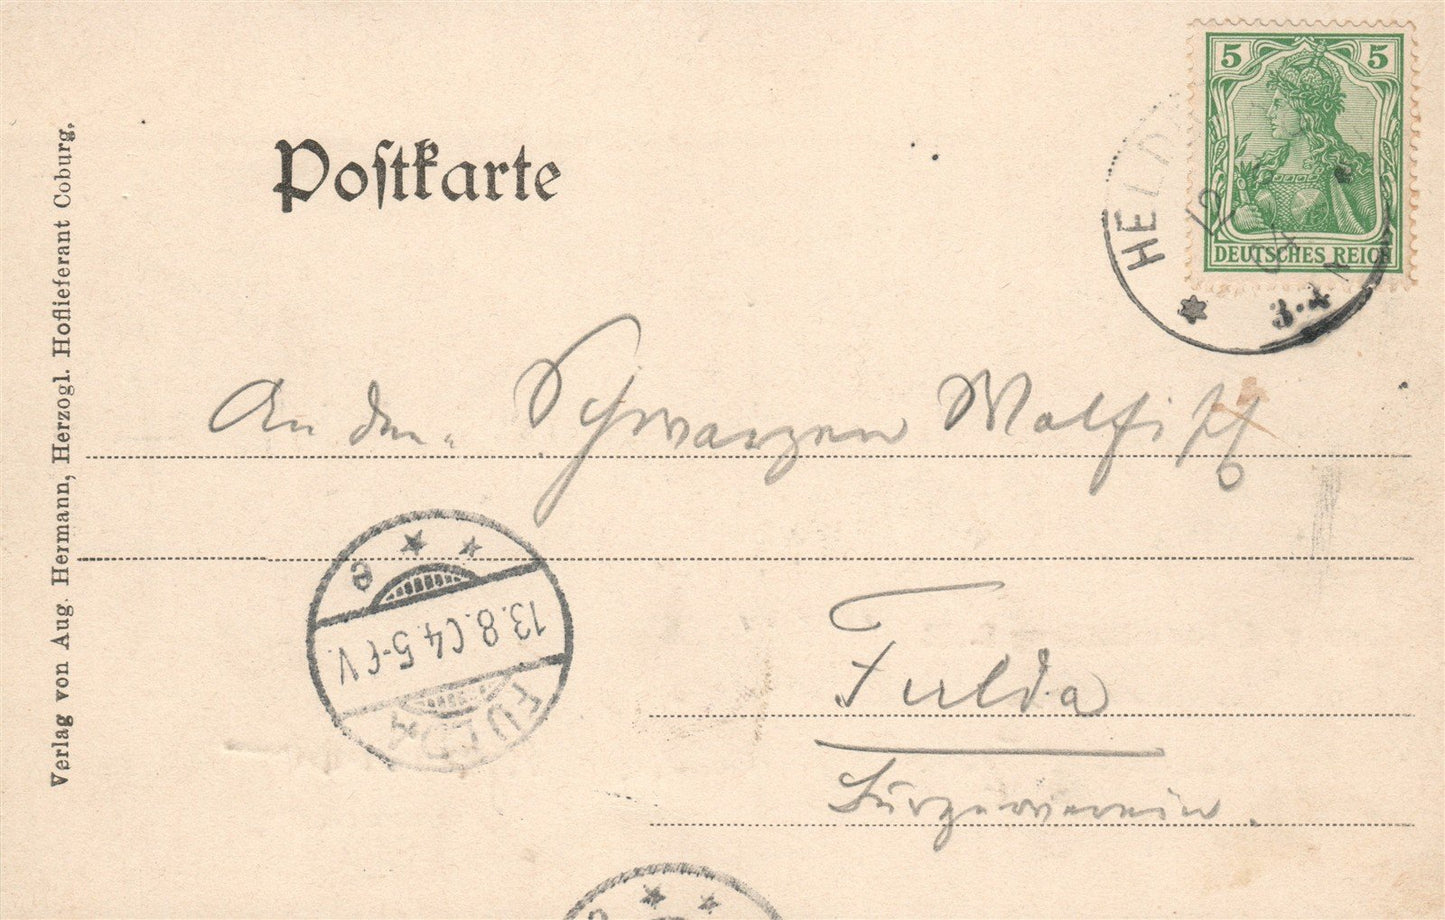 Postkarte
5 5
DEUTSCHES REICH
HELD
12
04
3-4 N
An den Schwarzen Walfisch
Fulda
Bürgerverein.
FULDA
13.8.04.5-6V.
e
Verlag von Aug. Hermann, Herzogl. Hoflieferant Coburg.